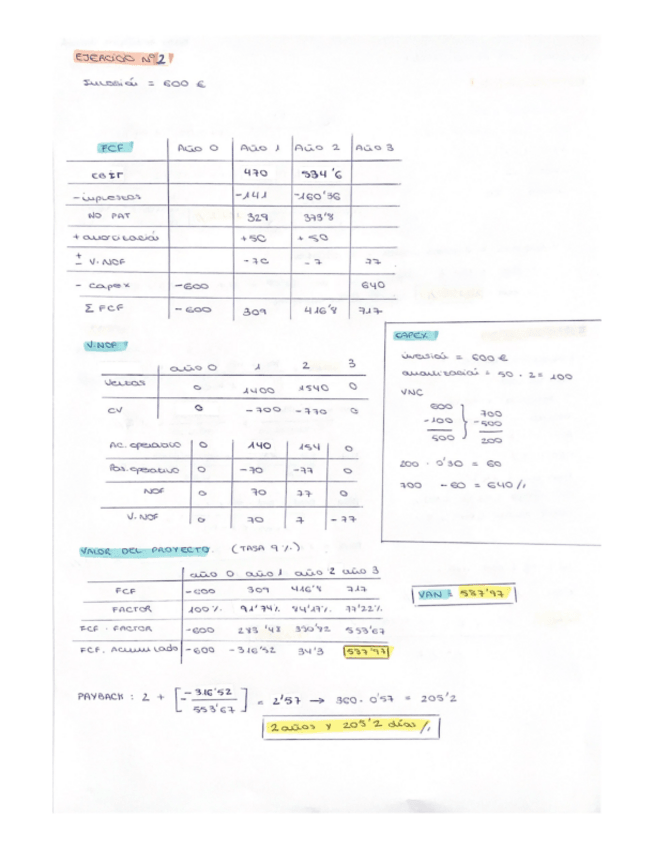 EJERCICIO Nº2
Inversión = 600 €
FCF Año 0 Año 1 Año 2 Año 3
EBIT 470 534'6
- impuestos -141 -160'36
NO PAT 329 373'8
+ amortización +50 +50
± V. NOF -70 -7 77
- Capex -600 640
Σ FCF -600 309 416'8 717
V.NOF
año 0 1 2 3
Ventas 0 1400 1540 0
CV 0 -700 -770 0
Ac. operativo 0 140 154 0
Pas. operativo 0 -70 -77 0
NOF 0 70 77 0
V. NOF 0 70 7 -77
CAPEX
inversión = 600 €
amortización = 50 · 2 = 100
VNC
600
-100
500
700
-500
200
200 · 0'30 = 60
700 - 60 = 640 /.
VALOR DEL PROYECTO. (TASA 9%)
año 0 año 1 año 2 año 3
FCF -600 309 416'8 717
FACTOR 100% 91'74% 84'17% 77'22%
FCF · FACTOR -600 283'48 350'82 553'67
FCF. Acumulado -600 -316'52 34'3 587'97
VAN = 587'97
PAYBACK : 2 + [ -316'52 / 553'67 ] = 2'57 → 360 · 0'57 = 205'2
2 años y 205'2 días /.